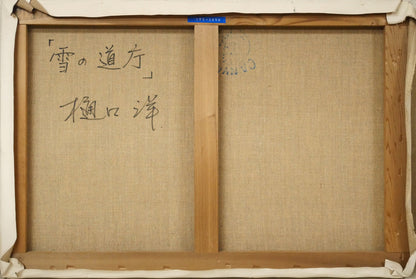 「雪の道庁」
樋口洋